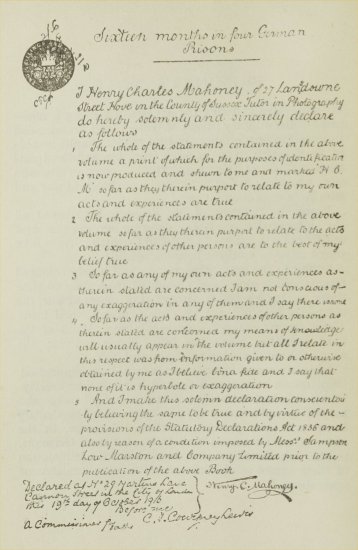 Sixteen months in four German
Prisons
I Henry Charles Mahoney of 27 Lansdowne
Street Hove in the County of Sussex Tutor in Photography
do hereby solemnly and sincerely declare
as follows
1 The whole of the statements contained in the above
volume a print of which for the purposes of identification
is now produced and shewn to me and marked "H C
M" so far as they therein purport to relate to my own
acts and experiences are true
2 The whole of the statements contained in the above
volume so far as they therein purport to relate to the acts
and experiences of other persons are to the best of my
belief true
3 So far as any of my own acts and experiences as
therein stated are concerned I am not conscious of
any exaggeration in any of them and I say there is none
4 So far as the acts and experiences of other persons as
therein stated are concerned my means of knowledge
will usually appear in the volume but all I relate in
this respect was from information given to or otherwise
obtained by me as I believe bona fide and I say that
none of it is hyperbole or exaggeration
5 And I make this solemn declaration conscientious
ly believing the same to be true and by virtue of the
provisions of the Statutory Declarations Act 1835 and
also by reason of a condition imposed by Messrs Sampson
Low Marston and Company Limited prior to the
publication of the above Book
Declared at No 29 Martins Lane
Cannon Street in the City of London
this 19th day of October 1916
Henry C. Mahoney.
Before me
A Commissioner for Oaths